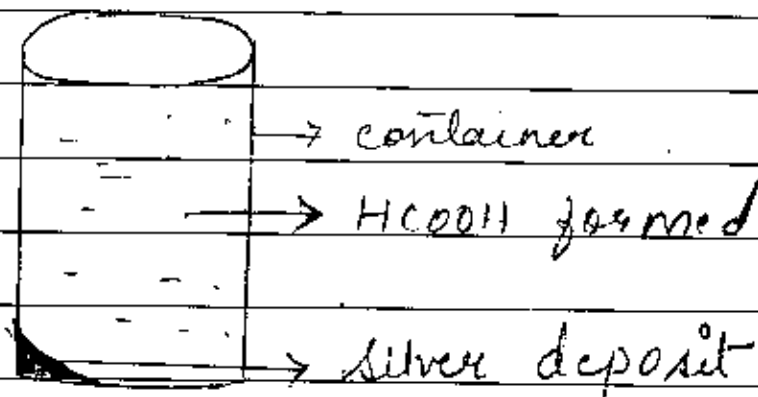 container
HCOOH formed
silver deposit